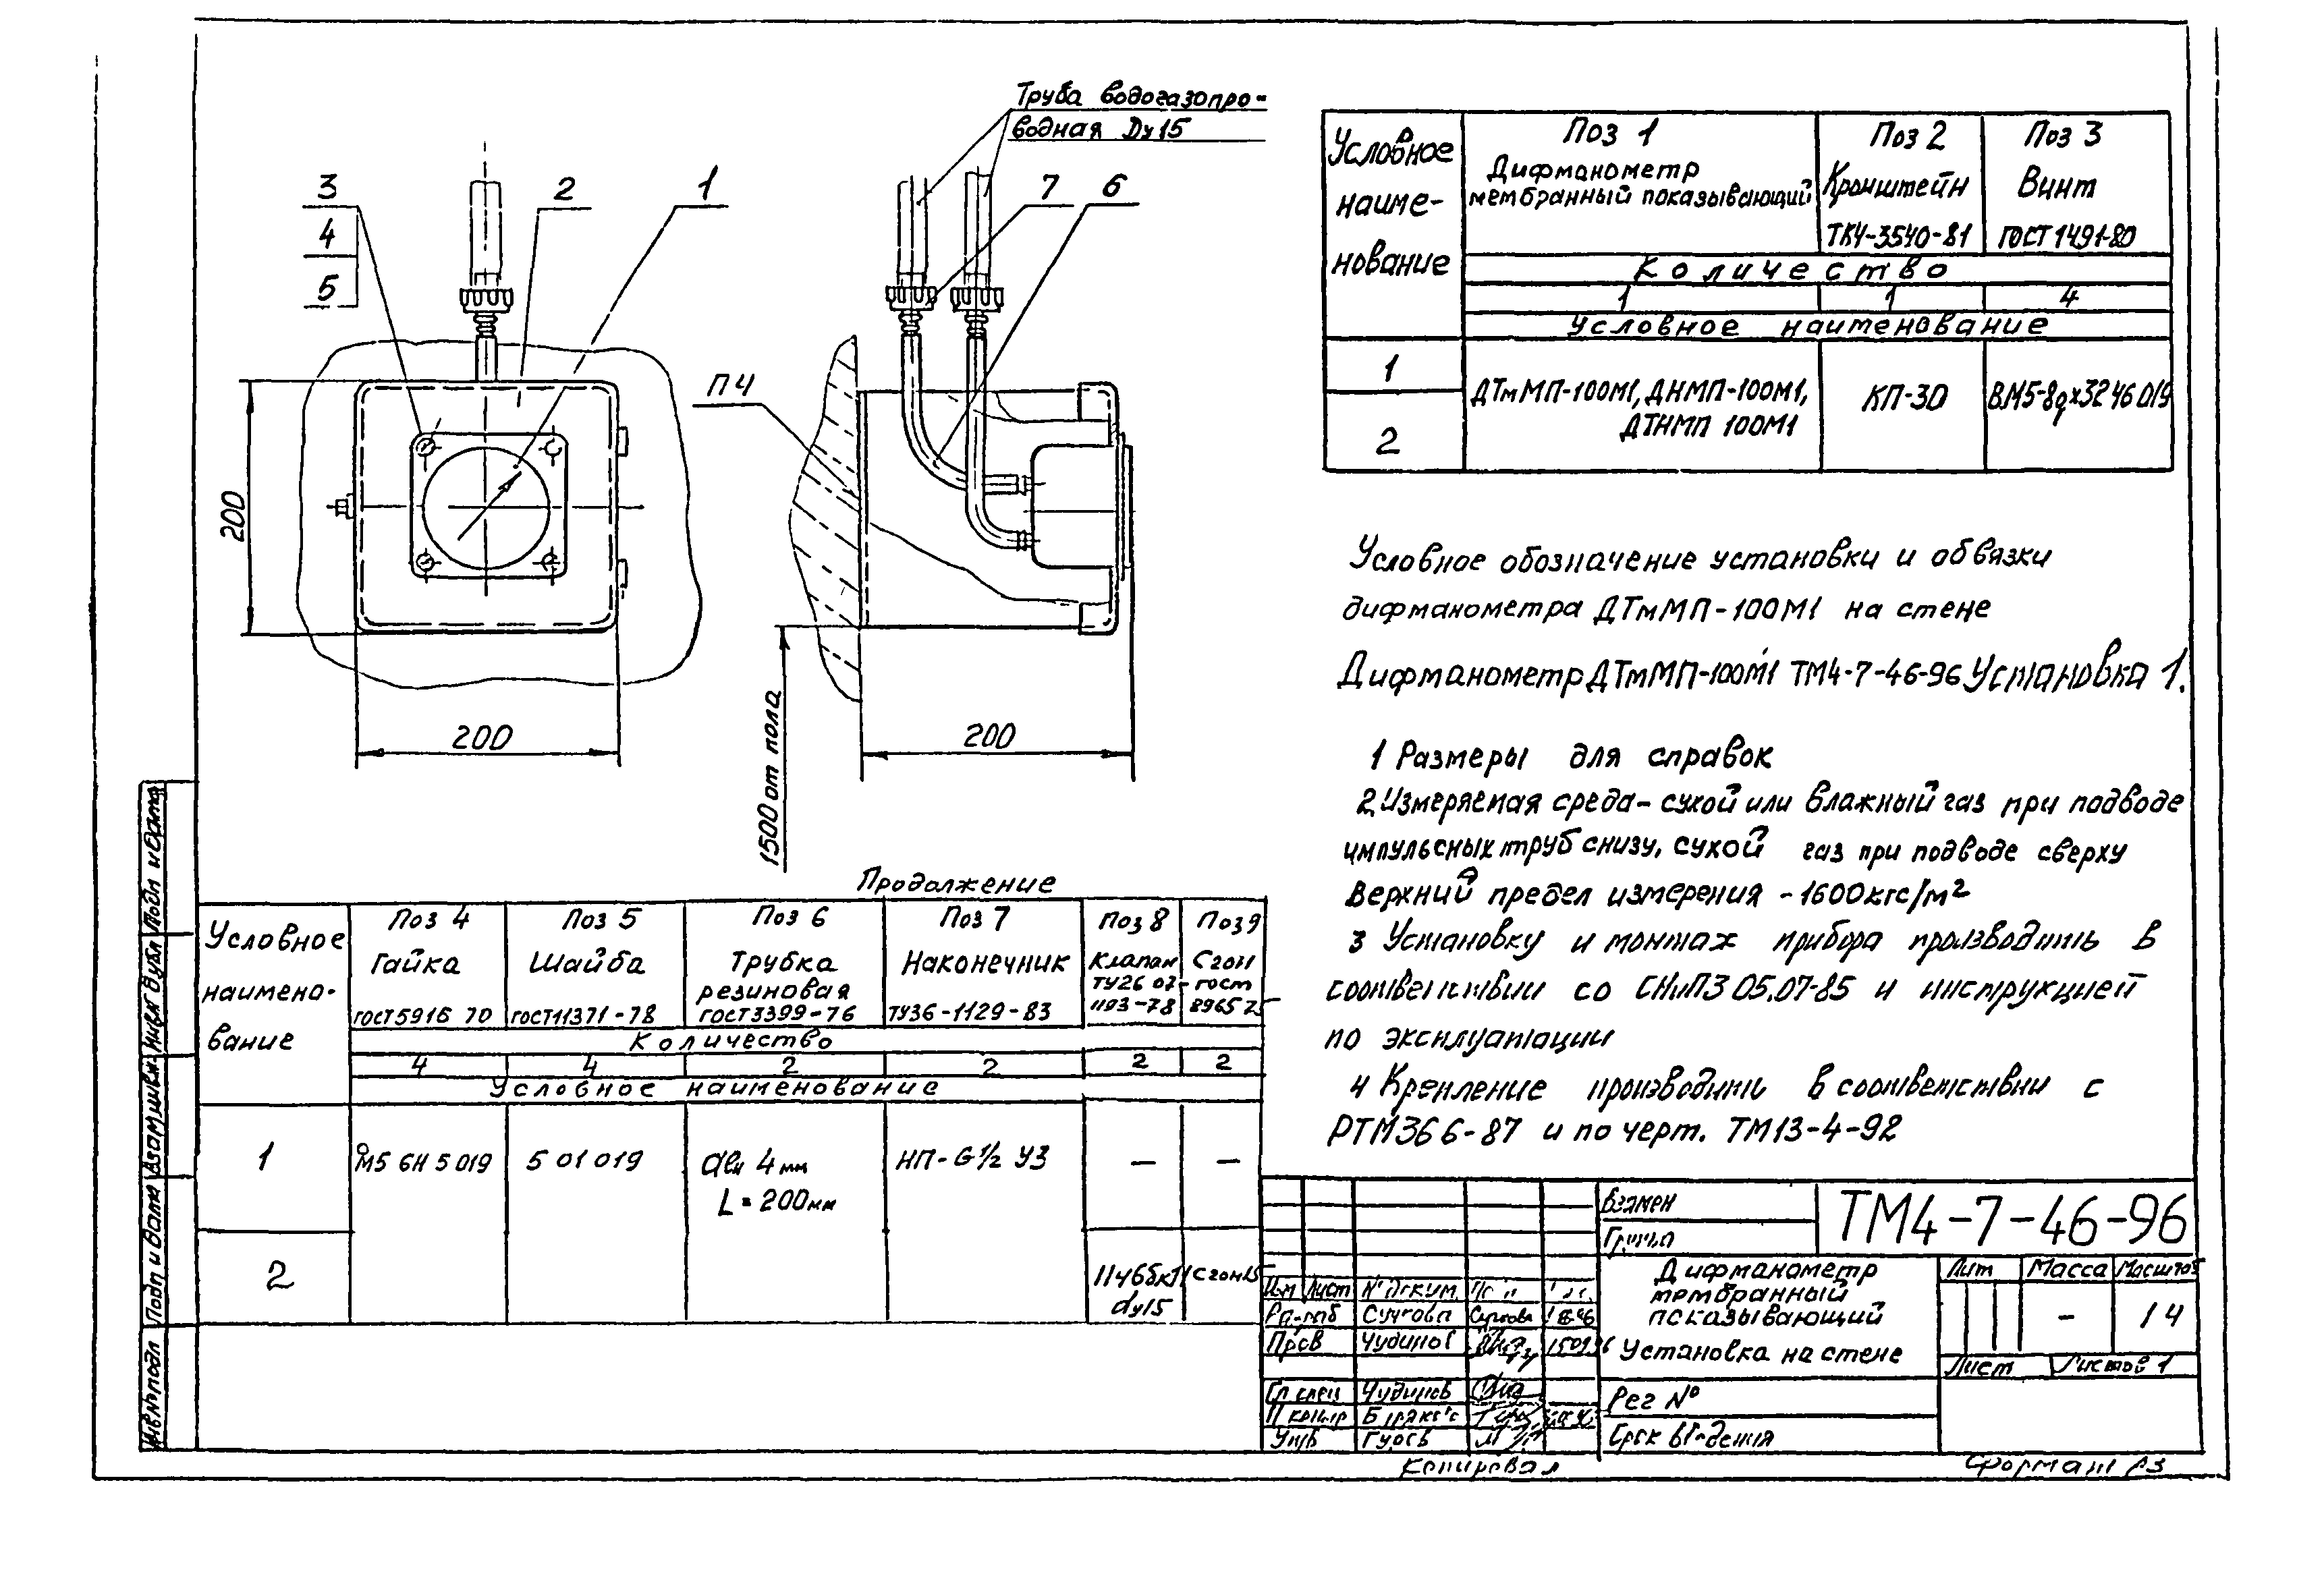 Труба водогазопро-
водная Dу15
3
4
5
2
1
7
6
П 4
200
200
200
1500 от пола
Условное
наиме-
нование
Поз 1
Дифманометр
мембранный показывающий
Поз 2
Кронштейн
ТК4-3540-81
Поз 3
Винт
ГОСТ 1491-80
Количество
1 1 4
Условное наименование
1
2
ДТмМП-100М1, ДНМП-100М1,
ДТНМП 100М1
КП-30
ВМ5-8gх32 46 019
Условное обозначение установки и обвязки
дифманометра ДТмМП-100М1 на стене
Дифманометр ДТмМП-100М1 ТМ4-7-46-96 Установка 1.
1 Размеры для справок
2 Измеряемая среда - сухой или влажный газ при подводе
импульсных труб снизу, сухой газ при подводе сверху
Верхний предел измерения - 1600кгс/м²
3 Установку и монтаж прибора производить в
соответствии со СНиП3 05.07-85 и инструкцией
по эксплуатации
4 Крепление производить в соответствии с
РТМ36 6-87 и по черт. ТМ13-4-92
Продолжение
Условное
наимено-
вание
Поз 4
Гайка
ГОСТ5916 70
Поз 5
Шайба
ГОСТ11371-78
Поз 6
Трубка
резиновая
ГОСТ3399-76
Поз 7
Наконечник
ТУ36-1129-83
Поз 8
Клапан
ТУ26 07-
1193-78
Поз 9
Сгон
ГОСТ
8965 75
Количество
4 4 2 2 2 2
Условное наименование
1
М5 6Н 5 019
5 01 019
dвн 4 мм
L = 200мм
НП-G½ У3
— —
2
11ч6бк
dу15
Сгон15
Взамен
Группа
ТМ4-7-46-96
Дифманометр
мембранный
показывающий
Установка на стене
Лит Масса Масштаб
- 1 4
Лист Листов 1
Изм Лист № докум.
Разраб
Пров Чудинов
Гл спец Чудинов
Н контр
Утв Гуров
Рег №
Срок введения
Копировал
Формат А3
Инв № подл
Подп и дата
Взам инв №
Инв № дубл
Подп и дата